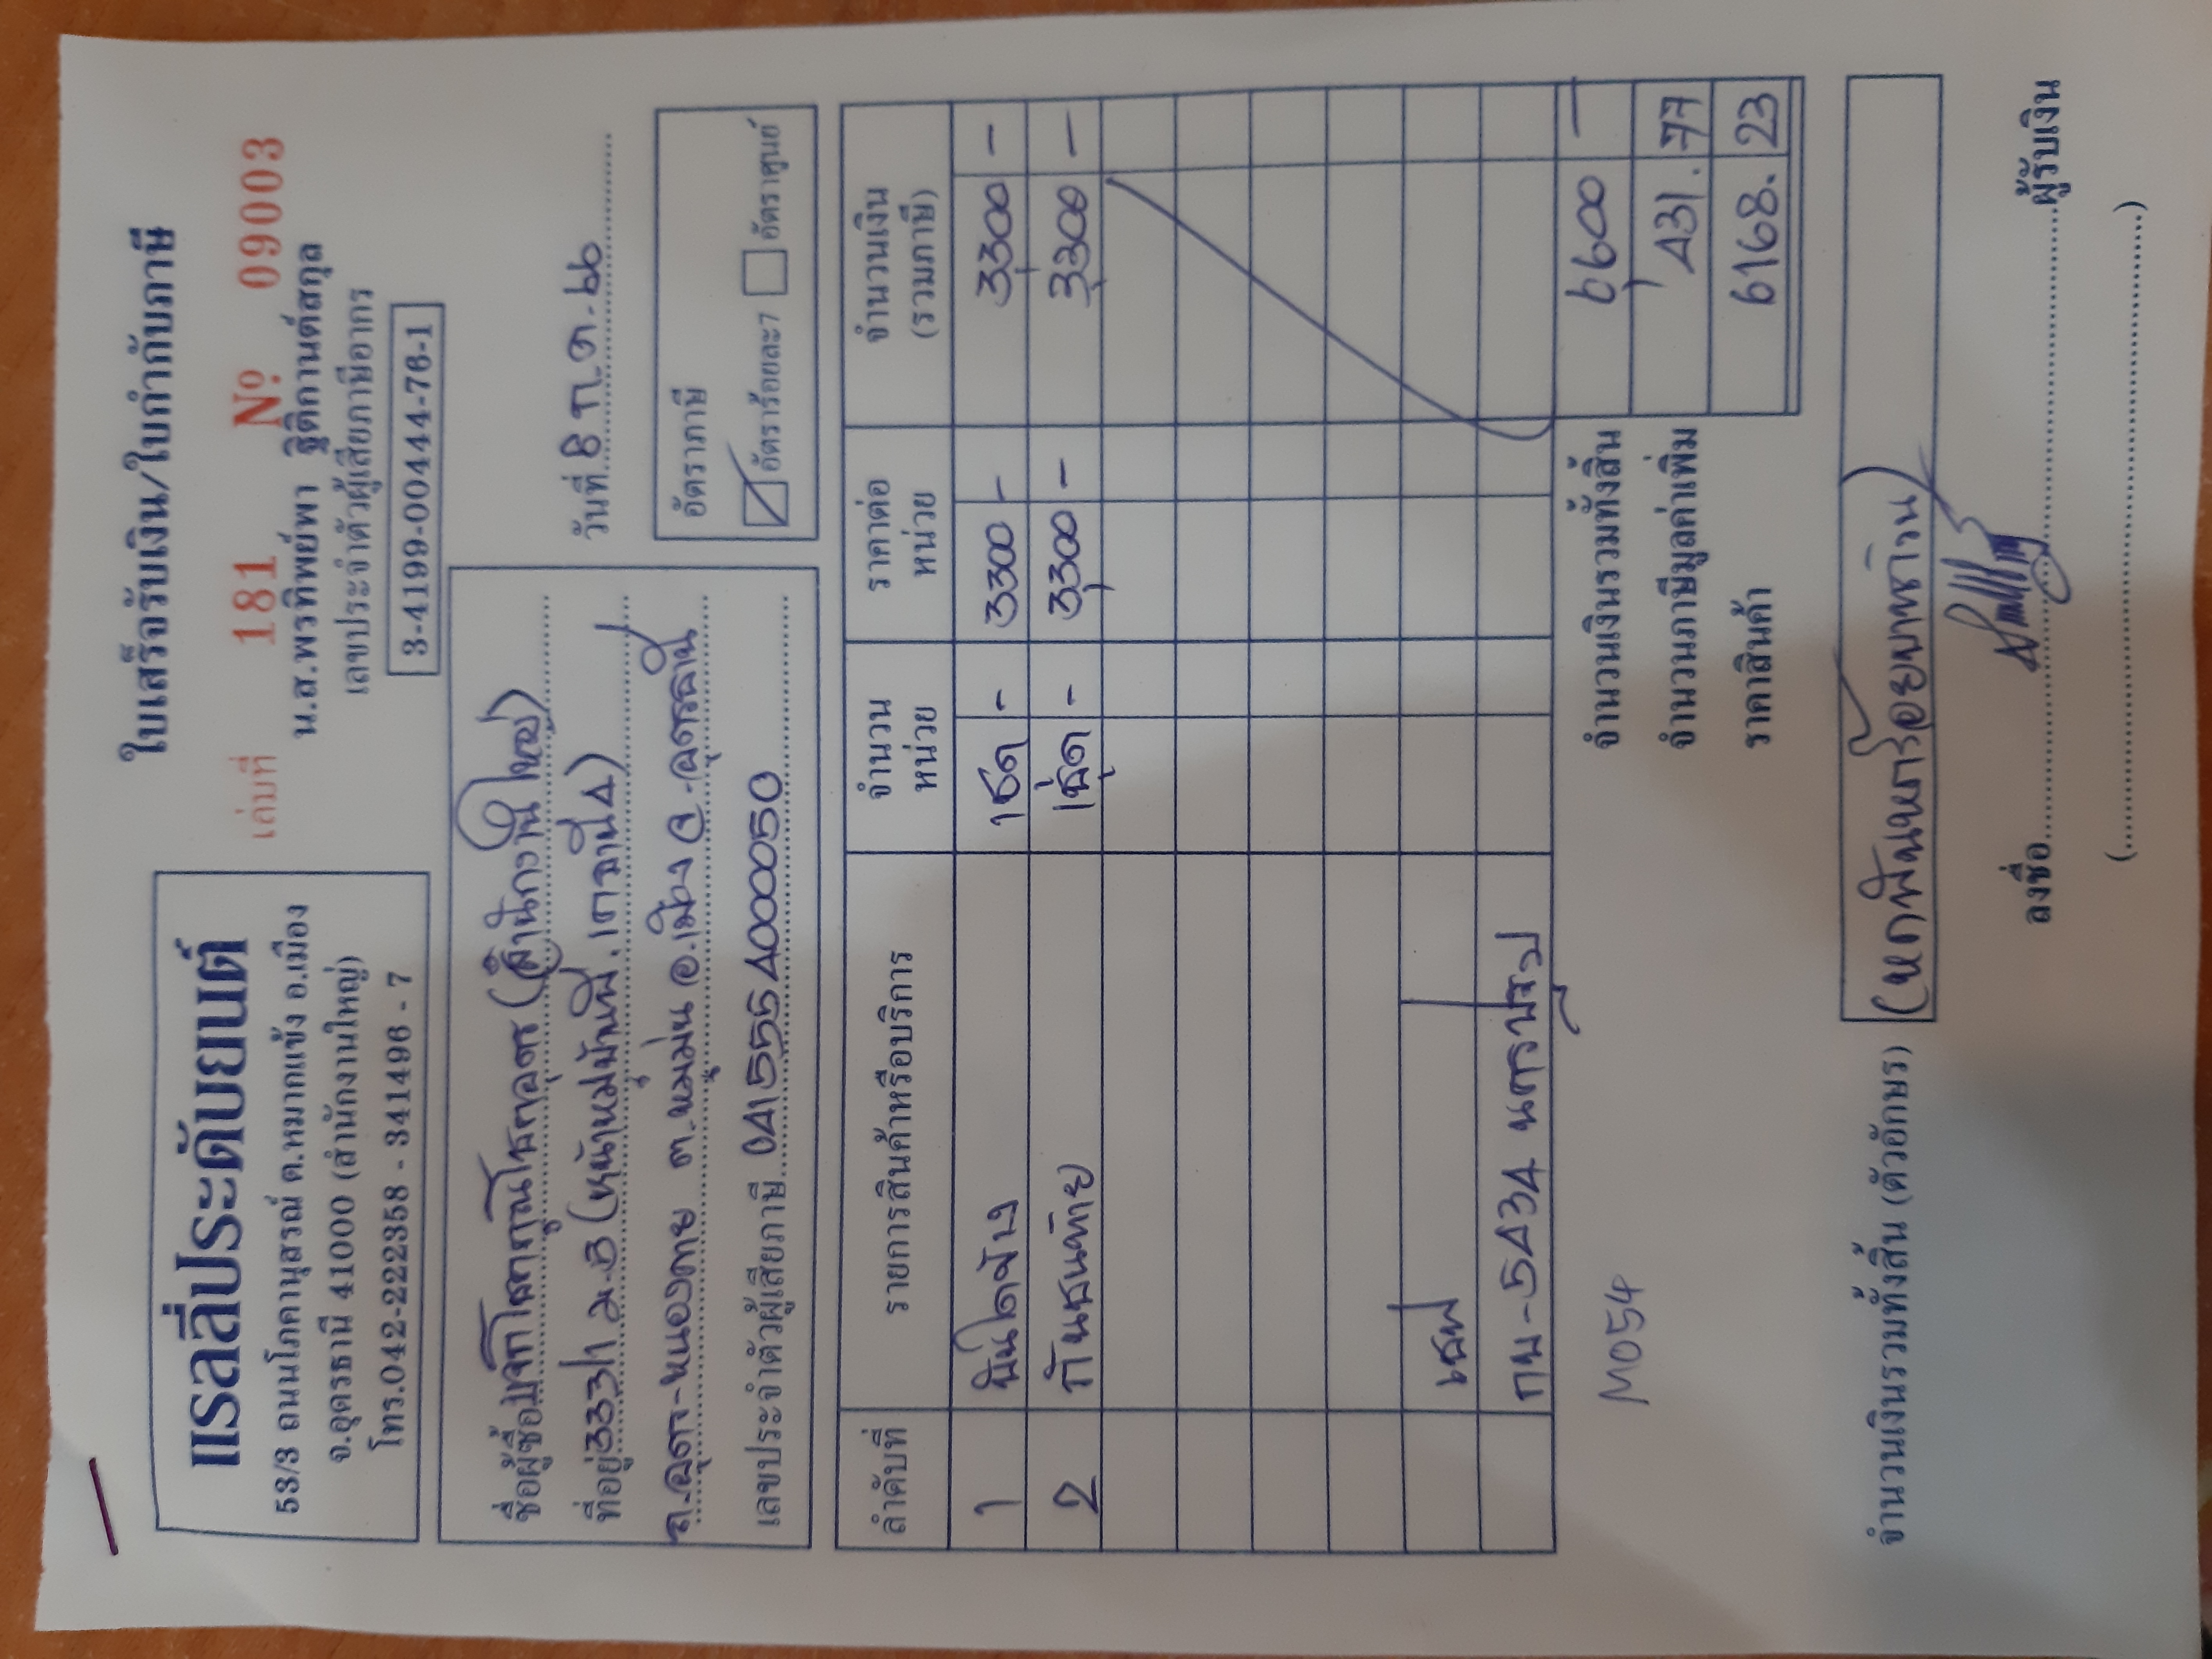 แรลลี่ประดับยนต์
53/3 ถนนโภคานุสรณ์ ต.หมากแข้ง อ.เมือง
จ.อุดรธานี 41000 (สำนักงานใหญ่)
โทร.042-222358 - 341496 - 7
ใบเสร็จรับเงิน/ใบกำกับภาษี
เล่มที่ 181 Nº 09003
น.ส.พรทิพย์พา ฐิติกานต์สกุล
เลขประจำตัวผู้เสียภาษีอากร
3-4199-00444-76-1
ชื่อผู้ซื้อ (สำนักงานใหญ่)
ที่อยู่ 333/1 ม.3 (หน้าหมู่บ้าน
ถ.อุดร-หนองคาย ต.หมูม่น อ.เมือง จ.อุดรธานี
เลขประจำตัวผู้เสียภาษี 0415554000050
วันที่ 8 ก.ค. 66
อัตราภาษี
อัตราร้อยละ7 อัตราศูนย์
ลำดับที่ รายการสินค้าหรือบริการ จำนวนหน่วย ราคาต่อหน่วย จำนวนเงิน (รวมภาษี)
1 บันไดข้าง 1ชุด - 3300 - 3300 -
2 กันชนท้าย 1ชุด - 3,300 - 3,300 -
กบ-5434
M054
จำนวนเงินรวมทั้งสิ้น 6,600 -
จำนวนภาษีมูลค่าเพิ่ม 431.77
ราคาสินค้า 6168.23
จำนวนเงินรวมทั้งสิ้น (ตัวอักษร) (หกพันหกร้อยบาทถ้วน)
ลงชื่อ ผู้รับเงิน